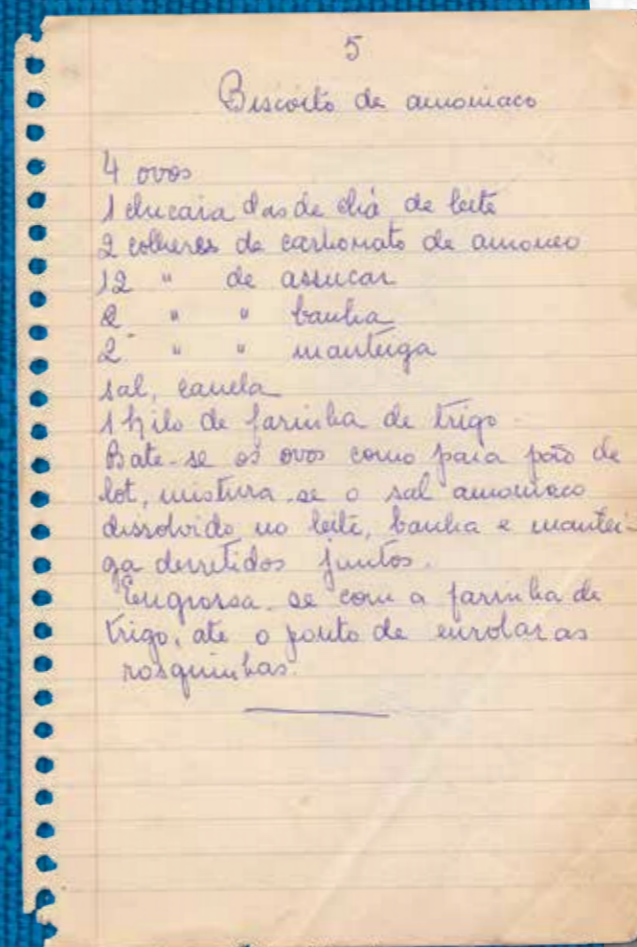 5
Biscoito de amoniaco
4 ovos
1 chicara das de chá de leite
2 colheres de carbonato de amoneo
12 " de assucar
2 " " banha
2 " " manteiga
sal, canela
1 kilo de farinha de trigo
Bate-se os ovos como para pão de
lot, mistura-se o sal amoniaco
dissolvido no leite, banha e mantei-
ga derretidos juntos.
Engrossa-se com a farinha de
trigo, ate o ponto de enrolar as
rosquinhas.